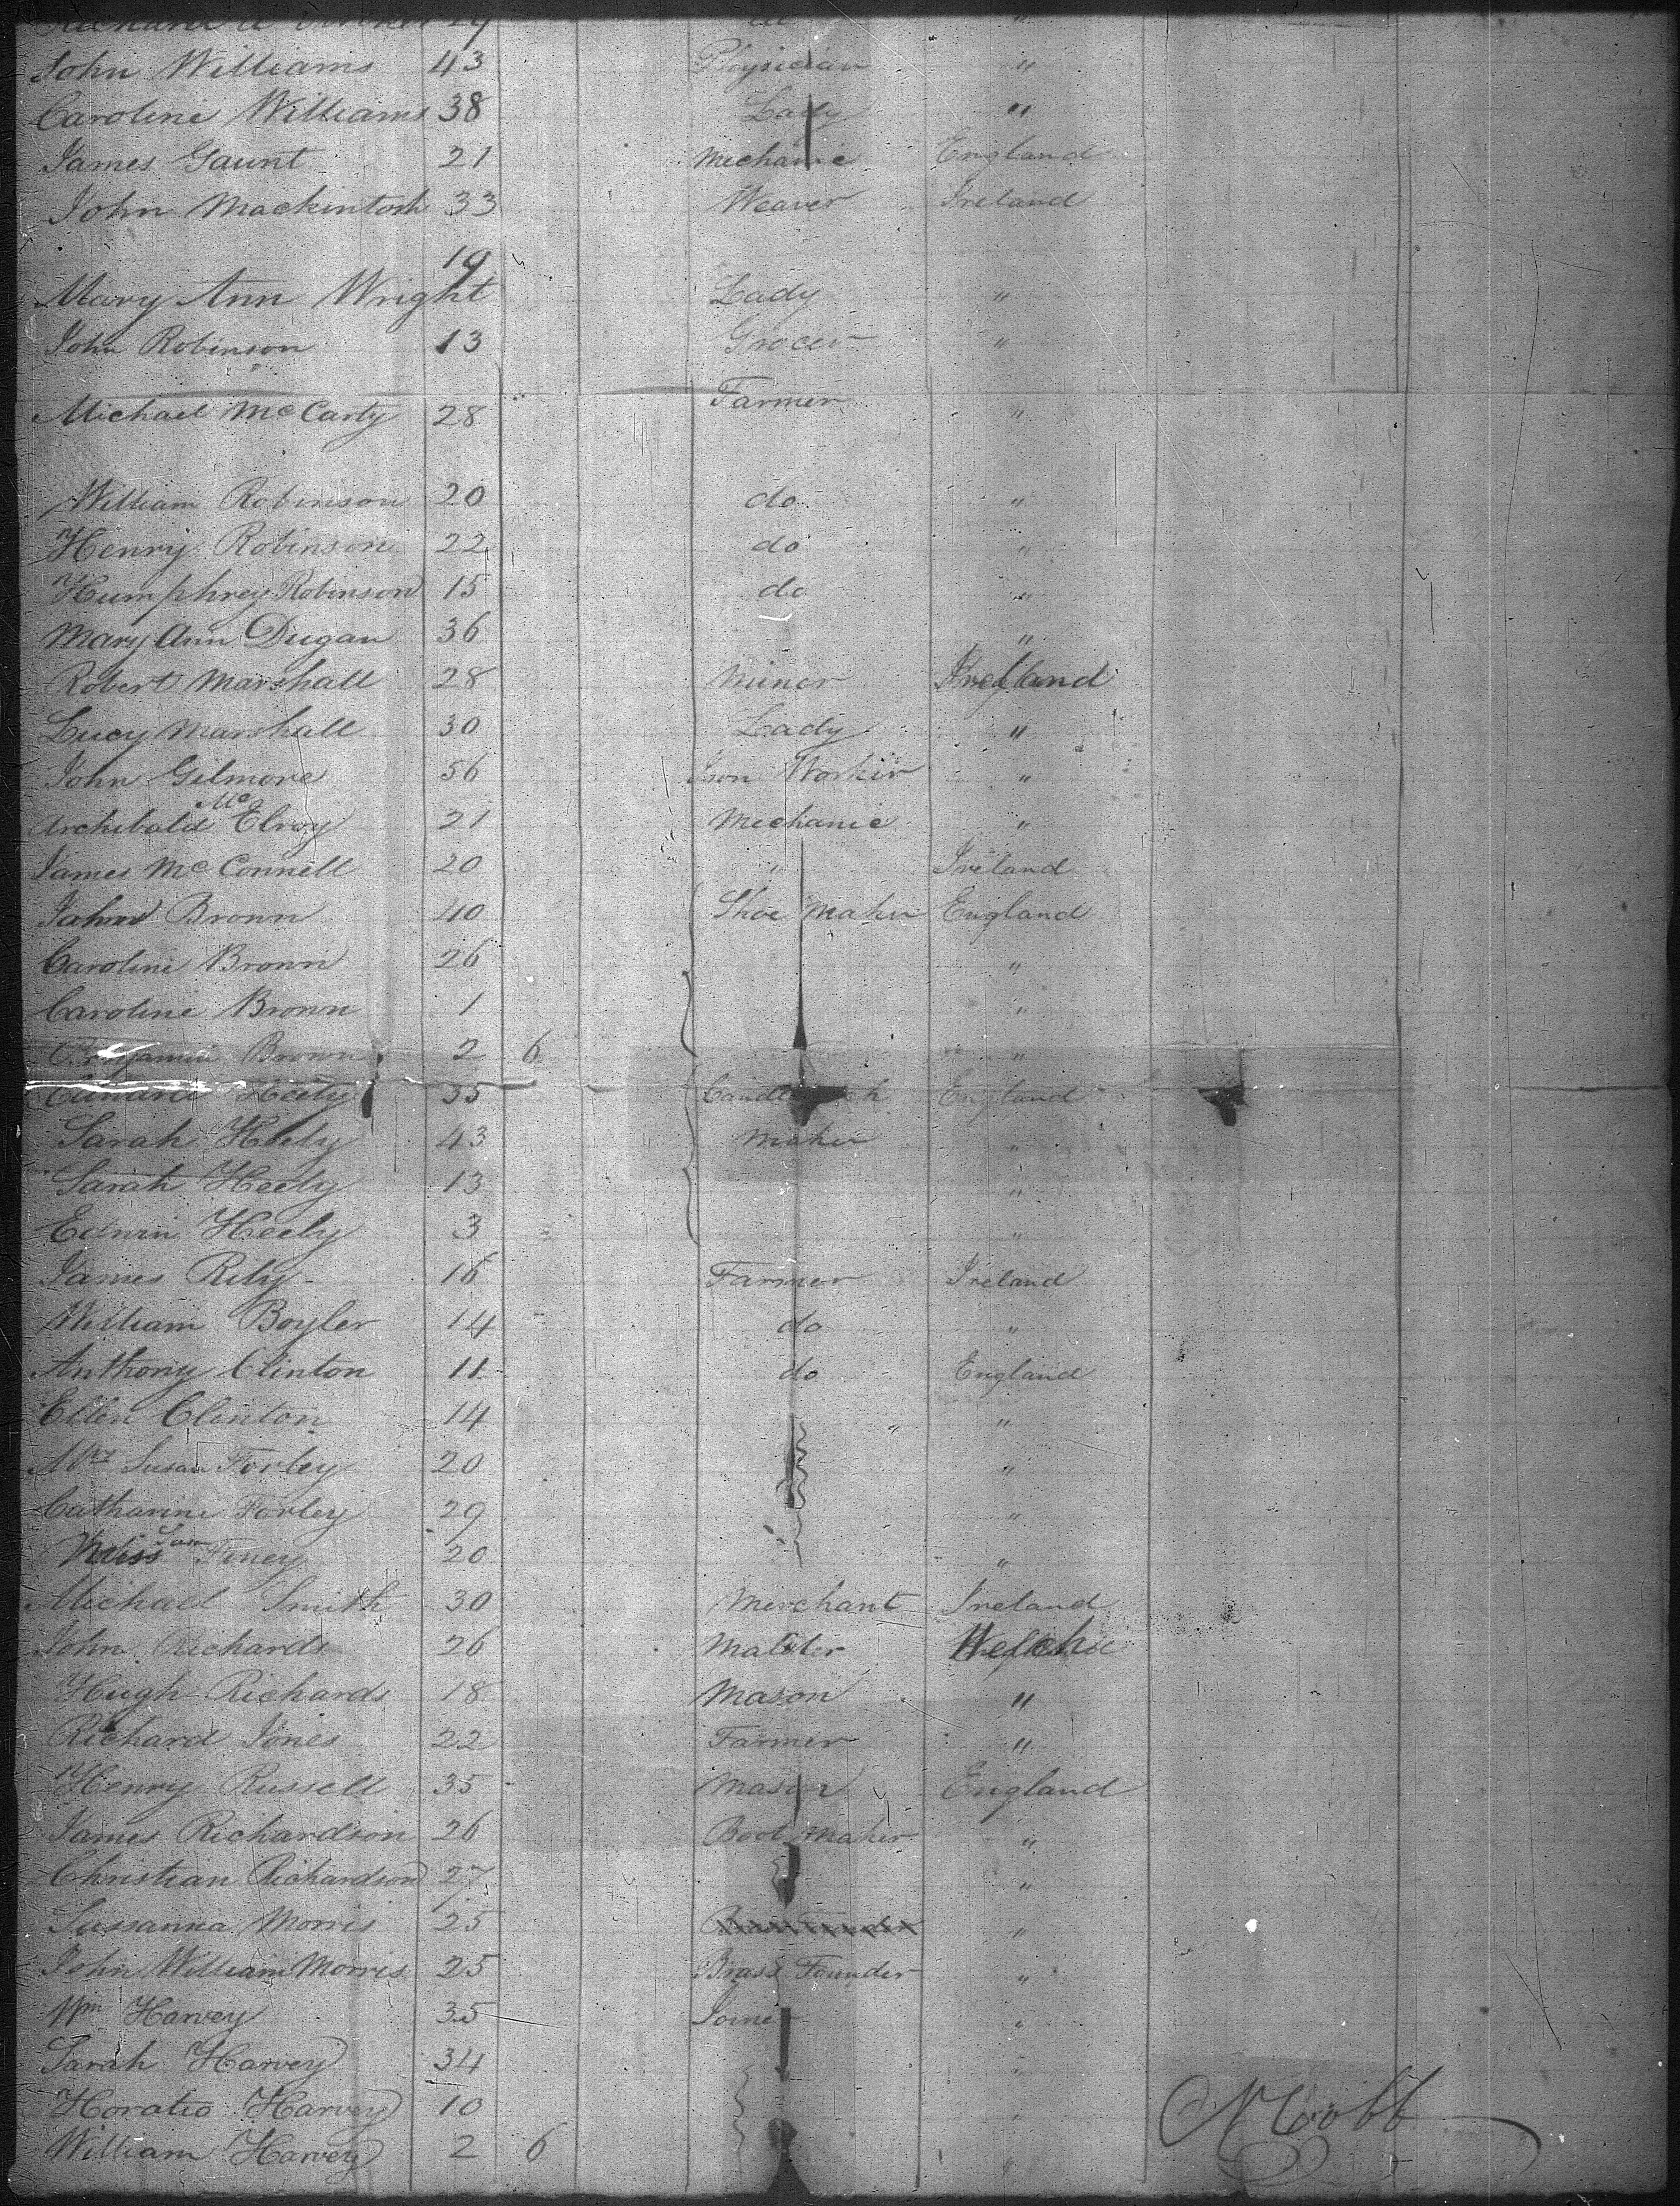 John Williams 43 Physician "
Caroline Williams 38 Lady "
James Gaunt 21 Mechanic England
John Mackintosh 33 Weaver Ireland
Mary Ann Wright 19 Lady "
John Robinson 13 Grocer "
Michael McCarty 28 Farmer "
William Robinson 20 do "
Henry Robinson 22 do "
Humphrey Robinson 15 do "
Mary Ann Dugan 36 "
Robert Marshall 28 Miner
Lucy Marshall 30 Lady "
John Gilmore 56 Iron Worker "
Archibald McElroy 21 Mechanic "
James McConnell 20 " Ireland
Brown 40 Shoe Maker England
Caroline Brown 26 "
Caroline Brown 1 "
Benjamin Brown 2 6 "
Heely 35 England
Sarah Heely 43 Maker "
Sarah Heely 13 "
Edwin Heely 3 "
James Rily 16 Farmer Ireland
William Boyler 14 do "
Anthony Clinton 11 do England
Ellen Clinton 14 "
Mrs Susan Forley 20 "
Catharine Forley 29 "
Miss Finey 20 "
Michael Smith 30 Merchant Ireland
John Richards 26 Malster
Hugh Richards 18 Mason "
Richard Jones 22 Farmer "
Henry Russell 35 Mason England
James Richardson 26 Boot Maker "
Christian Richardson 27 "
Sussanna Morris 25 "
John William Morris 25 Brass Founder "
Wm Harvey 35 Joiner "
Sarah Harvey 34 "
Horatio Harvey 10 "
N Cobb
William Harvey 2 6 "